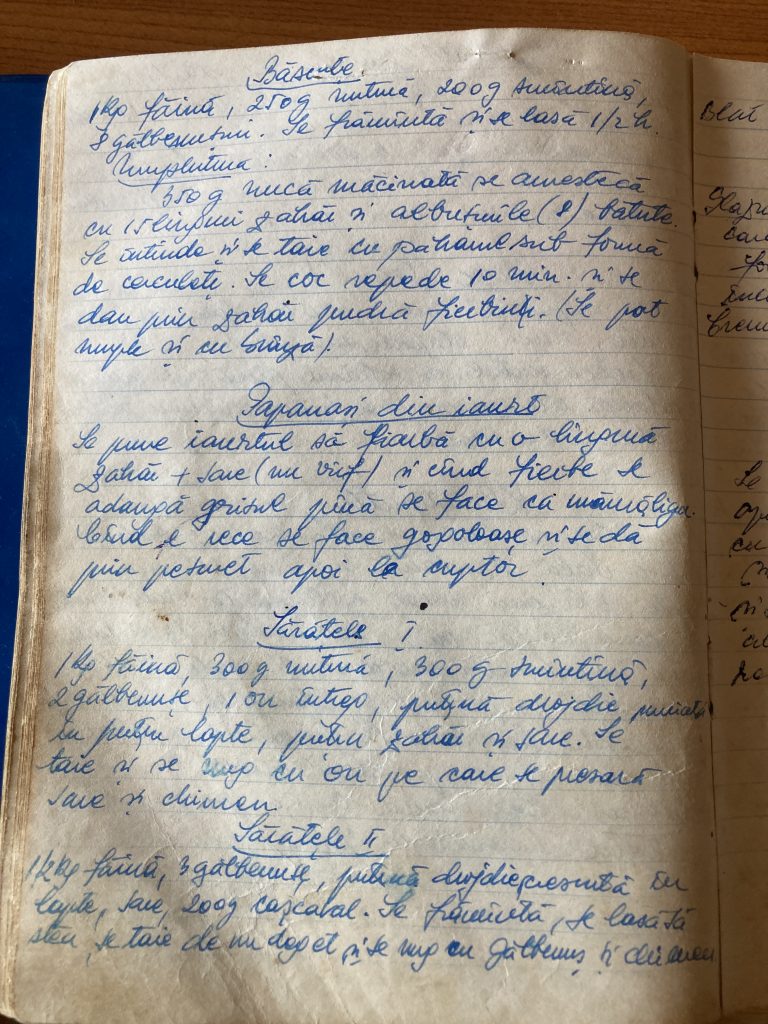 Băscute.
1 Kg făină, 250g untură, 200g smîntînă,
8 gălbenușuri. Se frămîntă și se lasă 1/2 h.
Umplutura:
350g nucă măcinată se amestecă
cu 15 linguri zahăr și albușurile (8) bătute.
Se întinde și se taie cu paharul sub formă
de corulețe. Se coc repede 10 min. și se
dau prin zahăr pudră fierbinți. (Se pot
umple și cu brînză).
Papanași din iaurt
Se pune iaurtul să fiarbă cu o lingură
zahăr + sare (un vîrf) și cînd fierbe se
adaugă grisul pînă se face ca mămăliga.
Cînd e rece se face gogoloașe și se dă
prin pesmet apoi la cuptor.
Sărățele I
1 Kg făină, 300g untură, 300g smîntînă,
2 gălbenușe, 1 ou întreg, puțină drojdie muiată
în puțin lapte, puțin zahăr și sare. Se
taie și se ung cu ou pe care se presară
sare și chimen.
Sărățele II
1/2 Kg făină, 3 gălbenușe, puțină drojdie în
lapte, sare, 200g cașcaval. Se frămîntă, se lasă să
stea, se taie de un deget și se ung cu gălbenuș și chimen
Blat
Se
cu